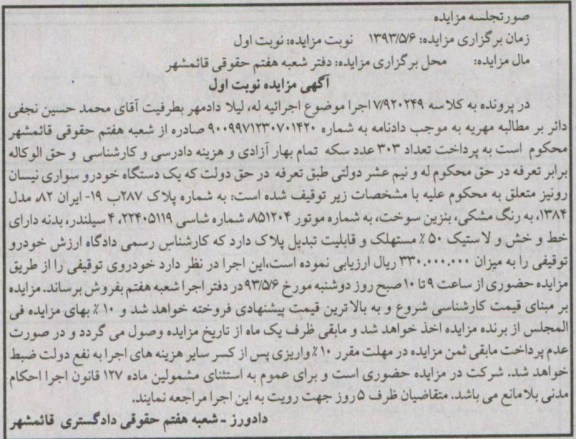 صورتجلسه مزایده
زمان برگزاری مزایده: ۱۳۹۳/۵/۶ نوبت مزایده: نوبت اول
مال مزایده: محل برگزاری مزایده: دفتر شعبه هفتم حقوقی قائمشهر
آگهی مزایده نوبت اول
در پرونده به کلاسه ۷/۹۲۰۲۴۹ اجرا موضوع اجرائیه له، لیلا دادمهر بطرفیت آقای محمد حسین نجفی
دائر بر مطالبه مهریه به موجب دادنامه به شماره ۹۰۰۹۹۷۱۲۳۰۷۰۱۴۲۰ صادره از شعبه هفتم حقوقی قائمشهر
محکوم است به پرداخت تعداد ۳۰۳ عدد سکه تمام بهار آزادی و هزینه دادرسی و کارشناسی و حق الوکاله
برابر تعرفه در حق محکوم له و نیم عشر دولتی طبق تعرفه در حق دولت که یک دستگاه خودرو سواری نیسان
رونیز متعلق به محکوم علیه با مشخصات زیر توقیف شده است: به شماره پلاک ۲۸۷ب ۱۹- ایران ۸۲، مدل
۱۳۸۴، به رنگ مشکی، بنزین سوخت، به شماره موتور ۸۵۱۲۰۴، شماره شاسی ۲۲۴۰۵۱۱۹، ۴ سیلندر، بدنه دارای
خط و خش و لاستیک ۵۰٪ مستهلک و قابلیت تبدیل پلاک دارد که کارشناس رسمی دادگاه ارزش خودرو
توقیفی را به میزان ۳۳۰,۰۰۰,۰۰۰ ریال ارزیابی نموده است،این اجرا در نظر دارد خودروی توقیفی را از طریق
مزایده حضوری از ساعت ۹ تا ۱۰ صبح روز دوشنبه مورخ ۹۳/۵/۶ در دفتر اجرا شعبه هفتم بفروش برساند. مزایده
بر مبنای قیمت کارشناسی شروع و به بالاترین قیمت پیشنهادی فروخته خواهد شد و ۱۰٪ بهای مزایده فی
المجلس از برنده مزایده اخذ خواهد شد و مابقی ظرف یک ماه از تاریخ مزایده وصول می گردد و در صورت
عدم پرداخت مابقی ثمن مزایده در مهلت مقرر ۱۰٪ واریزی پس از کسر سایر هزینه های اجرا به نفع دولت ضبط
خواهد شد. شرکت در مزایده حضوری است و برای عموم به استثنای مشمولین ماده ۱۲۷ قانون اجرا احکام
مدنی بلامانع می باشد. متقاضیان ظرف ۵ روز جهت رویت به این اجرا مراجعه نمایند.
دادورز - شعبه هفتم حقوقی دادگستری قائمشهر